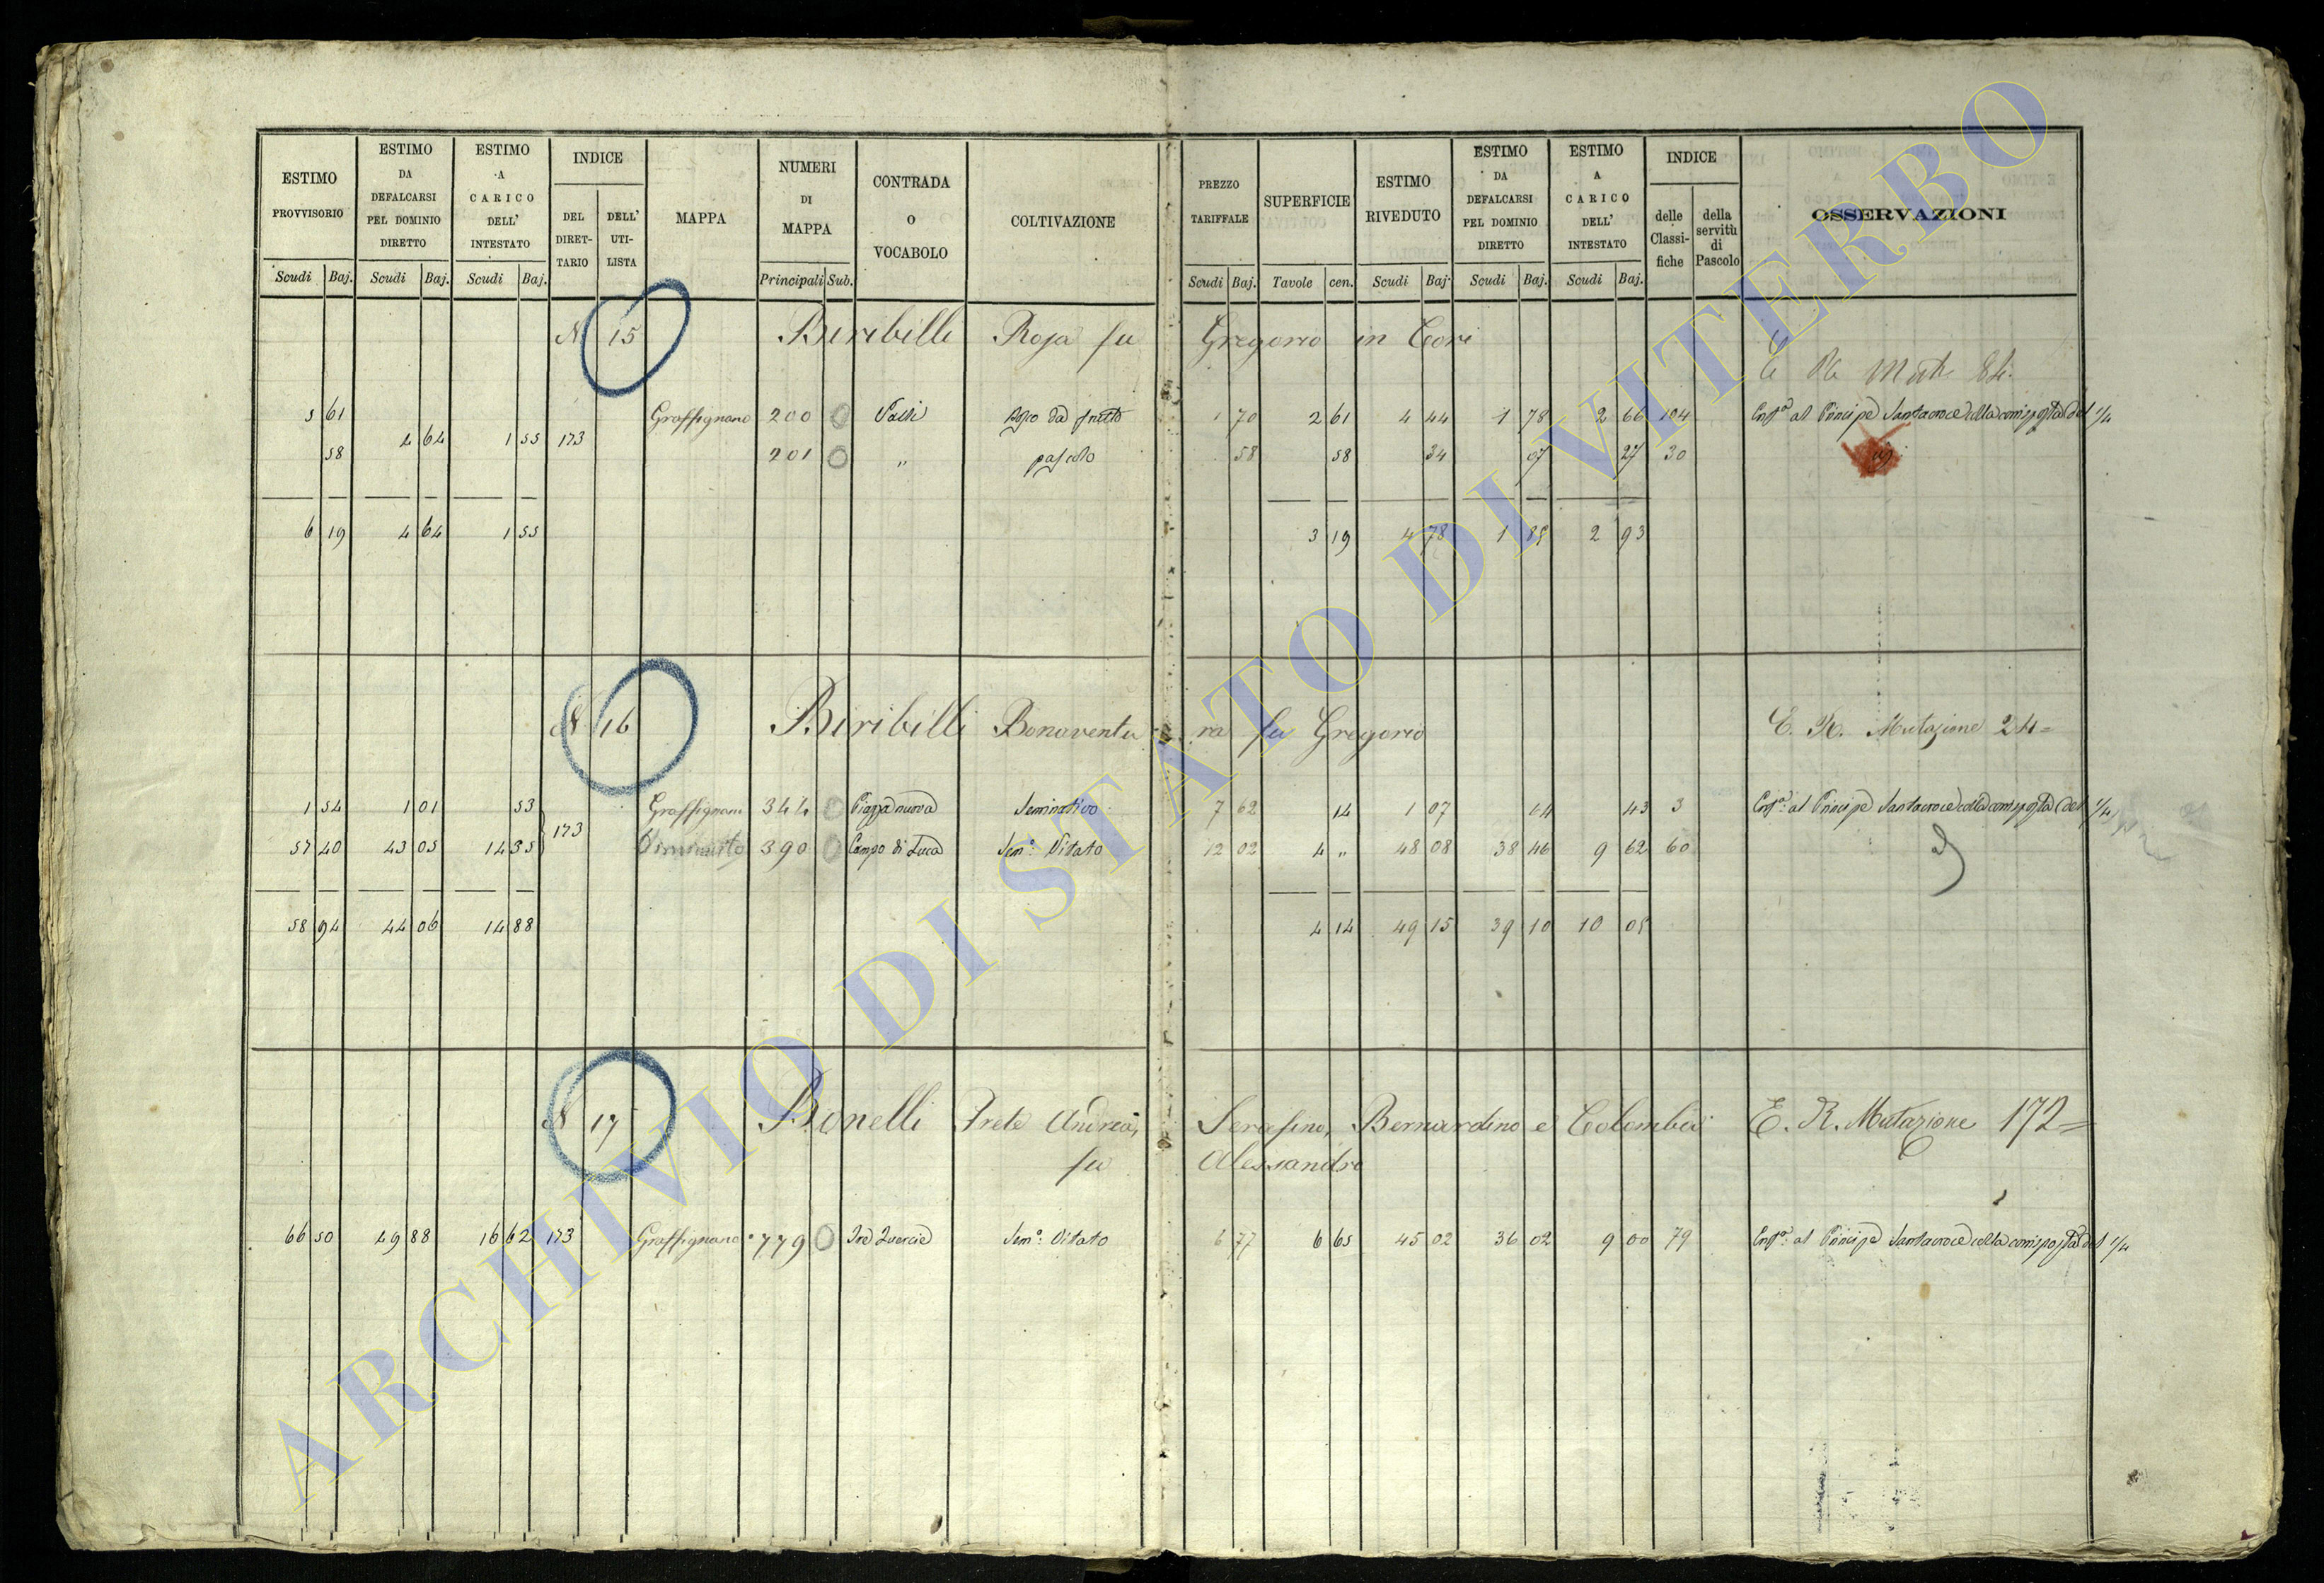 ESTIMO PROVVISORIO
ESTIMO DA DEFALCARSI PEL DOMINIO DIRETTO
ESTIMO A CARICO DELL' INTESTATO
INDICE
DEL DIRETTARIO
DELL' UTILISTA
MAPPA
NUMERI DI MAPPA
CONTRADA O VOCABOLO
COLTIVAZIONE
PREZZO TARIFFALE
SUPERFICIE
ESTIMO RIVEDUTO
ESTIMO DA DEFALCARSI PEL DOMINIO DIRETTO
ESTIMO A CARICO DELL' INTESTATO
INDICE
delle Classifiche
della servitù di Pascolo
OSSERVAZIONI
Scudi Baj. Scudi Baj. Scudi Baj. Principali Sub. Scudi Baj. Tavole cen. Scudi Baj. Scudi Baj. Scudi Baj.
N 15 Biribilli Rosa fu Gregorio in Cori
5 61 Graffignano 200 0 Valli da frutto 1 70 2 61 4 44 1 78 2 66 104 Enf.ª al Principe Santacroce colla corrisposta del 1/4
4 64 1 55 173
58 201 0 " pascolo 58 58 34 07 27 30
6 19 4 64 1 55 3 19 4 78 1 85 2 93
N 16 Biribilli Bonaventura fu Gregorio E. R. Mutazione 24=
1 54 1 01 53 Graffignano 344 0 Piazza nuova Seminativo 7 62 14 1 07 64 43 3 Enf.ª al Principe Santacroce colla corrisposta del 1/4
173
57 40 43 05 14 35 390 0 Campo di Luca Sem.º Vitato 12 02 4 " 48 08 38 46 9 62 60
58 94 44 06 14 88 4 14 49 15 39 10 10 05
N 17 Bonelli Prete Andrea, Serafino, Bernardino e Colomba E. R. Mutazione 172=
fu Alessandro
66 50 49 88 16 62 173 Graffignano 779 0 Sem.º Vitato 6 77 6 65 45 02 36 02 9 00 79 Enf.ª al Principe Santacroce colla corrisposta del 1/4
ARCHIVIO DI STATO DI VITERBO